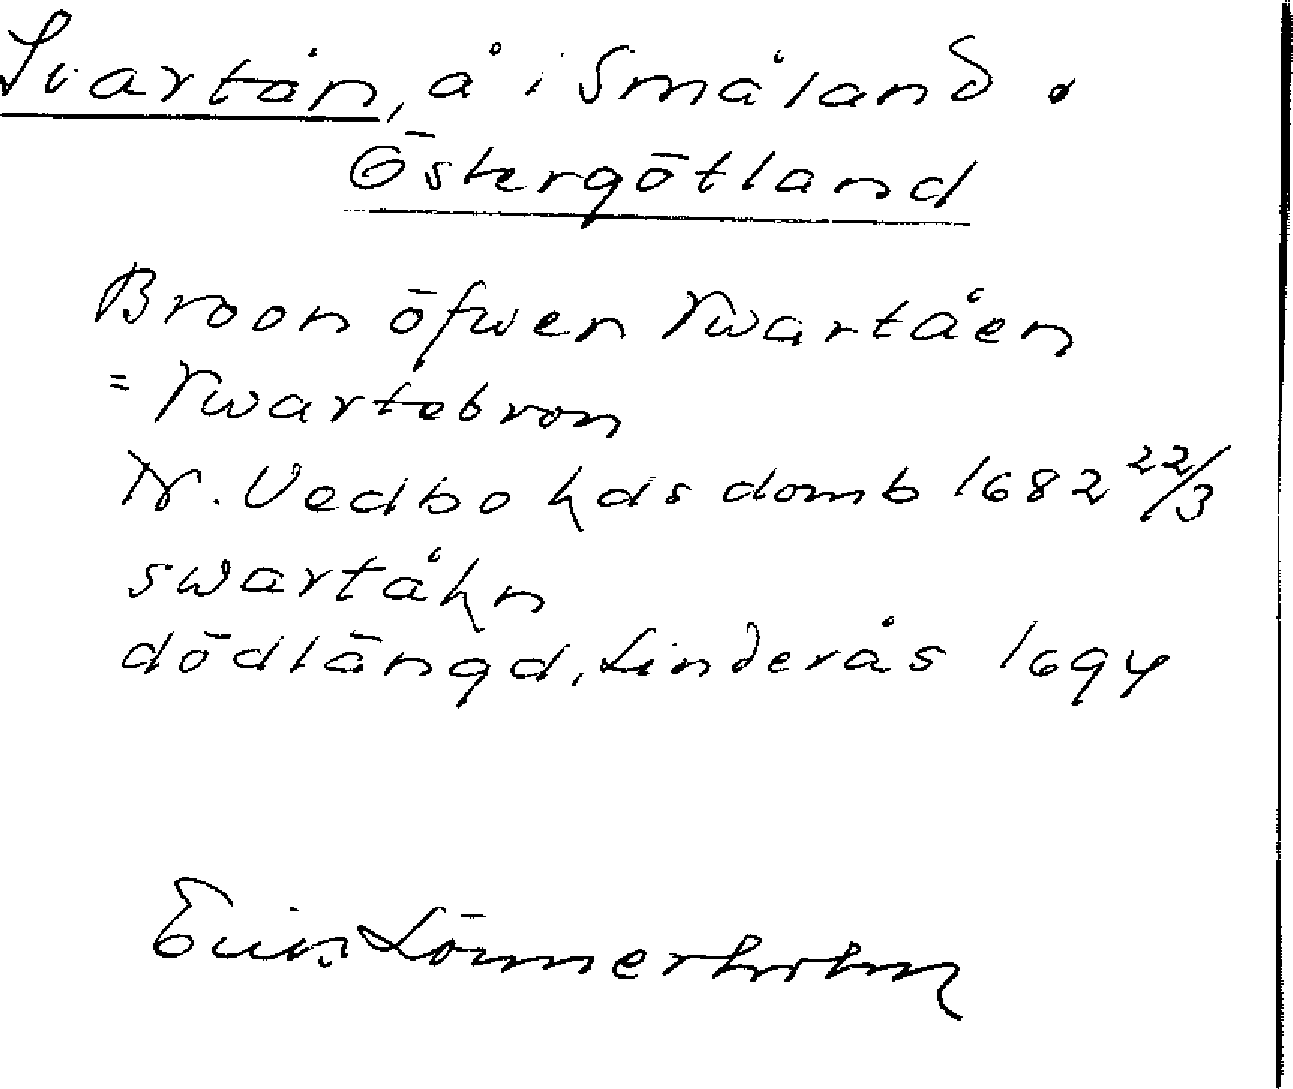 Svartån, å i Småland o
Östergötland
Broon öfwer Swartåen
= Swartebron
N. Vedbo hds domb 1682 22/3
swartåhn
dödlängd, Linderås 1694
Lönnerholm